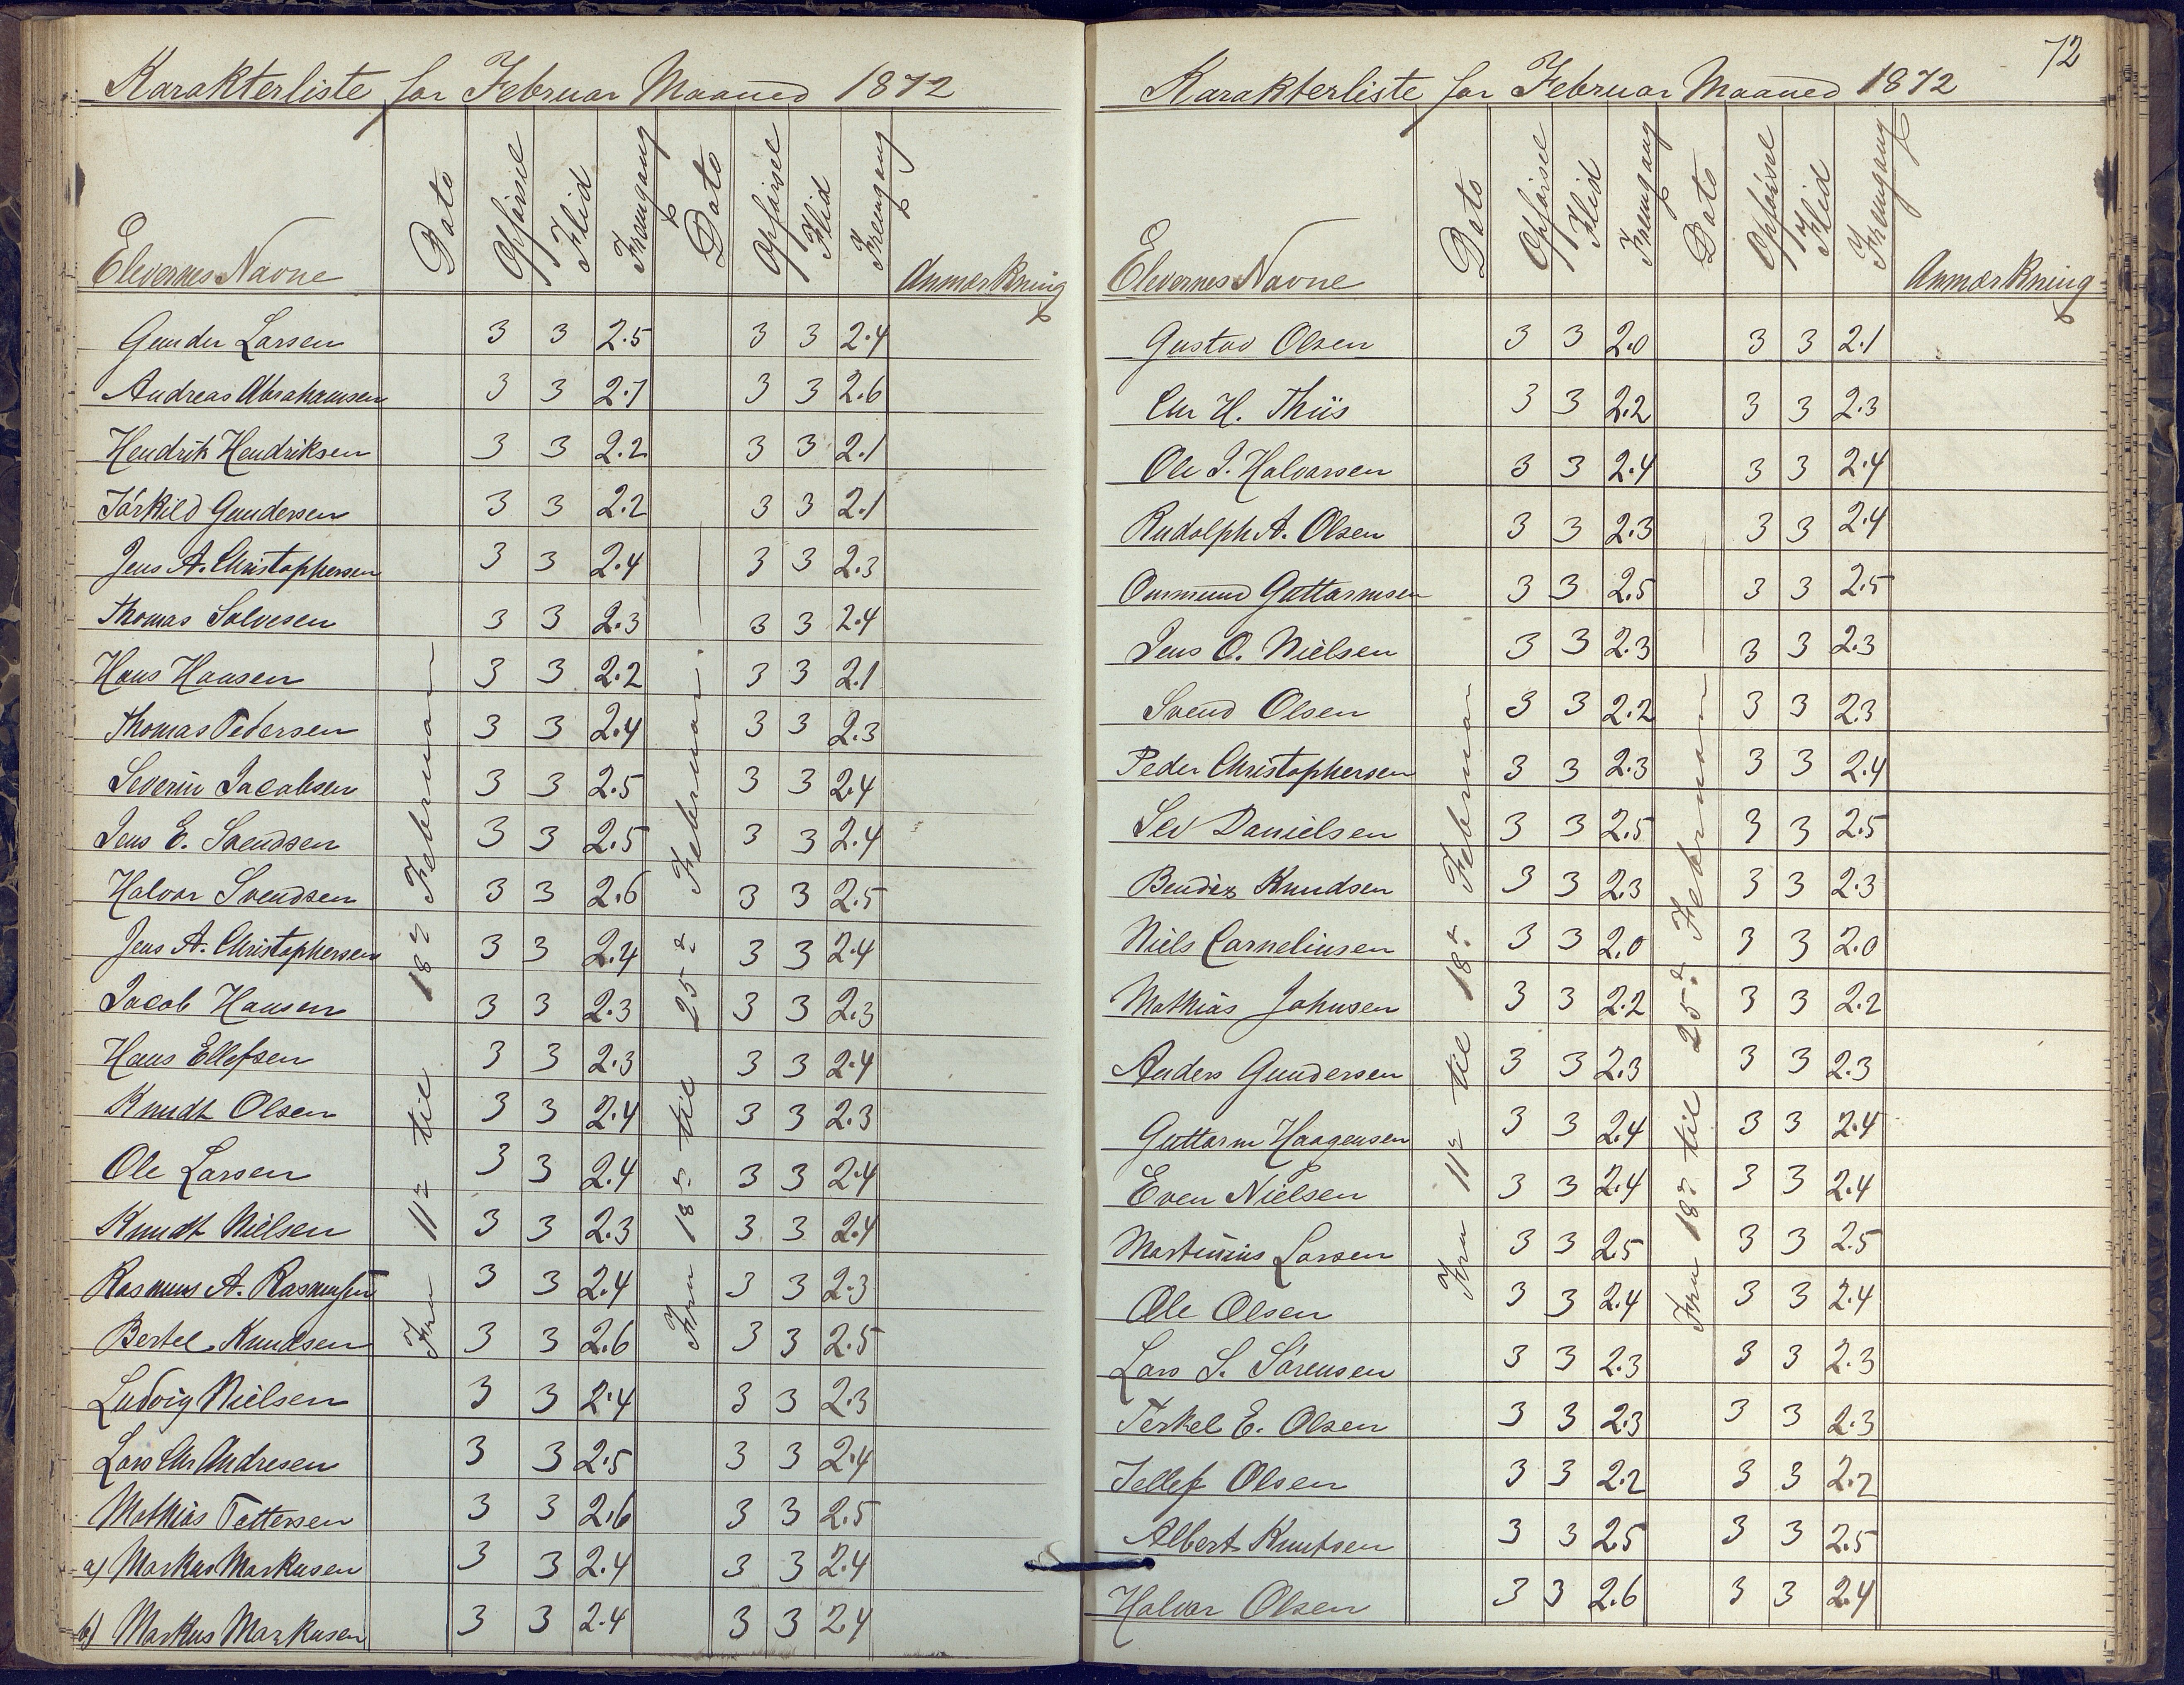 Karakterliste for Februar Maaned 1872
Elevernes Navne Dato Opførsel Flid Fremgang Dato Opførsel Flid Fremgang Anmærkning
Fra 11te til 18de Februar
Fra 18de til 25de Februar
Gunder Larsen 3 3 2.5 3 3 2.4
Andreas Abrahamsen 3 3 2.7 3 3 2.6
Hendrik Hendriksen 3 3 2.2 3 3 2.1
Tórkild Gundersen 3 3 2.2 3 3 2.1
Jens A. Christophersen 3 3 2.4 3 3 2.3
Thomas Solvesen 3 3 2.3 3 3 2.4
Hans Hansen 3 3 2.2 3 3 2.1
Thomas Pedersen 3 3 2.4 3 3 2.3
Severin Jacobsen 3 3 2.5 3 3 2.4
Jens E. Svendsen 3 3 2.5 3 3 2.4
Halvor Svendsen 3 3 2.6 3 3 2.5
Jens A. Christophersen 3 3 2.4 3 3 2.4
Jacob Hansen 3 3 2.3 3 3 2.3
Hans Ellefsen 3 3 2.3 3 3 2.4
Knudt Olsen 3 3 2.4 3 3 2.3
Ole Larsen 3 3 2.4 3 3 2.4
Knudt Nielsen 3 3 2.3 3 3 2.4
Rasmus A. Rasmusen 3 3 2.4 3 3 2.3
Bertel Knudsen 3 3 2.6 3 3 2.5
Ludvig Nielsen 3 3 2.4 3 3 2.3
Lars Chr Andresen 3 3 2.5 3 3 2.4
Mathias Tettersen 3 3 2.6 3 3 2.5
a) Markus Markusen 3 3 2.4 3 3 2.4
b) Markus Markusen 3 3 2.4 3 3 2.4
72
Karakterliste for Februar Maaned 1872
Elevernes Navne Dato Opførsel Flid Fremgang Dato Opførsel Flid Fremgang Anmærkning
Fra 11te til 18de Februar
Fra 18de til 25de Februar
Gustav Olsen 3 3 2.0 3 3 2.1
Chr H. Thiis 3 3 2.2 3 3 2.3
Ole J. Halvorsen 3 3 2.4 3 3 2.4
Rudolph A. Olsen 3 3 2.3 3 3 2.4
Ommund Guttormsen 3 3 2.5 3 3 2.5
Jens O. Nielsen 3 3 2.3 3 3 2.3
Svend Olsen 3 3 2.2 3 3 2.3
Peder Christophersen 3 3 2.3 3 3 2.4
Sev Danielsen 3 3 2.5 3 3 2.5
Bendix Knudsen 3 3 2.3 3 3 2.3
Niels Corneliusen 3 3 2.0 3 3 2.0
Mathias Johnsen 3 3 2.2 3 3 2.2
Anders Gundersen 3 3 2.3 3 3 2.3
Guttorm Haagensen 3 3 2.4 3 3 2.4
Even Nielsen 3 3 2.4 3 3 2.4
Martinius Larsen 3 3 2.5 3 3 2.5
Ole Olsen 3 3 2.4 3 3 2.4
Lars S. Sórensen 3 3 2.3 3 3 2.3
Terkel E. Olsen 3 3 2.3 3 3 2.3
Tellef Olsen 3 3 2.2 3 3 2.2
Albert Knutsen 3 3 2.5 3 3 2.5
Halvor Olsen 3 3 2.6 3 3 2.4